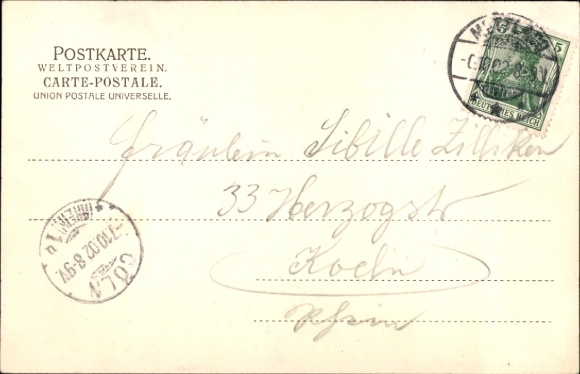 POSTKARTE.
WELTPOSTVEREIN.
CARTE-POSTALE.
UNION POSTALE UNIVERSELLE.
5
DEUTSCHES REICH
Fräulein Sibille Zilliken
33 Herzogstr
Koeln
Rhein
CÖLN
7.10.02.8-9V.